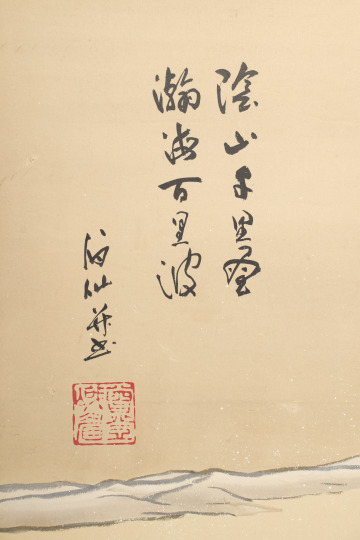 陰山千里雪
瀚海百里波
仙并書